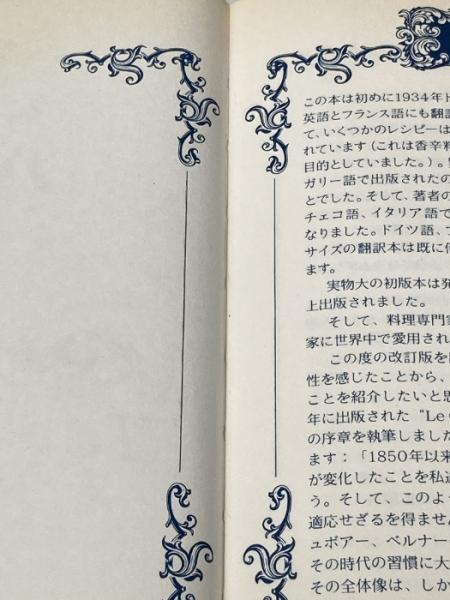 この本は初めに1934年ド
英語とフランス語にも翻訳
て、いくつかのレシピーは
れています（これは香辛料
目的としていました。）。
ガリー語で出版されたの
とでした。そして、著者の
チェコ語、イタリア語で
なりました。ドイツ語、
サイズの翻訳本は既に
ます。
実物大の初版本は発
上出版されました。
そして、料理専門家
家に世界中で愛用され
この度の改訂版を
性を感じたことから、
ことを紹介したいと思
年に出版された“Le
の序章を執筆しました
ます：「1850年以来
が変化したことを私達
う。そして、このよう
適応せざるを得ません
ュボアー、ベルナー
その時代の習慣に大
その全体像は、しか